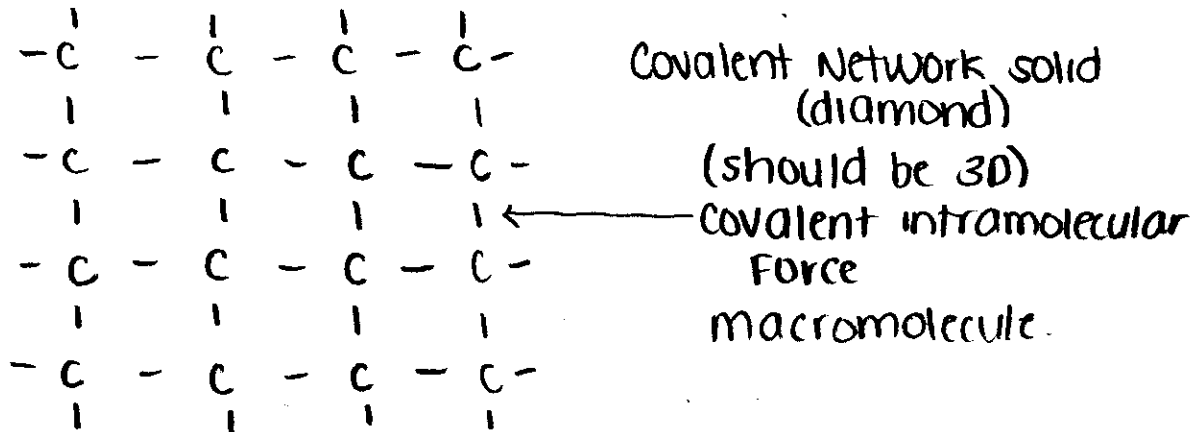 - C - C - C - C -
- C - C - C - C -
- C - C - C - C -
- C - C - C - C -
Covalent Network solid
(diamond)
(should be 3D)
Covalent intramolecular
Force
macromolecule.